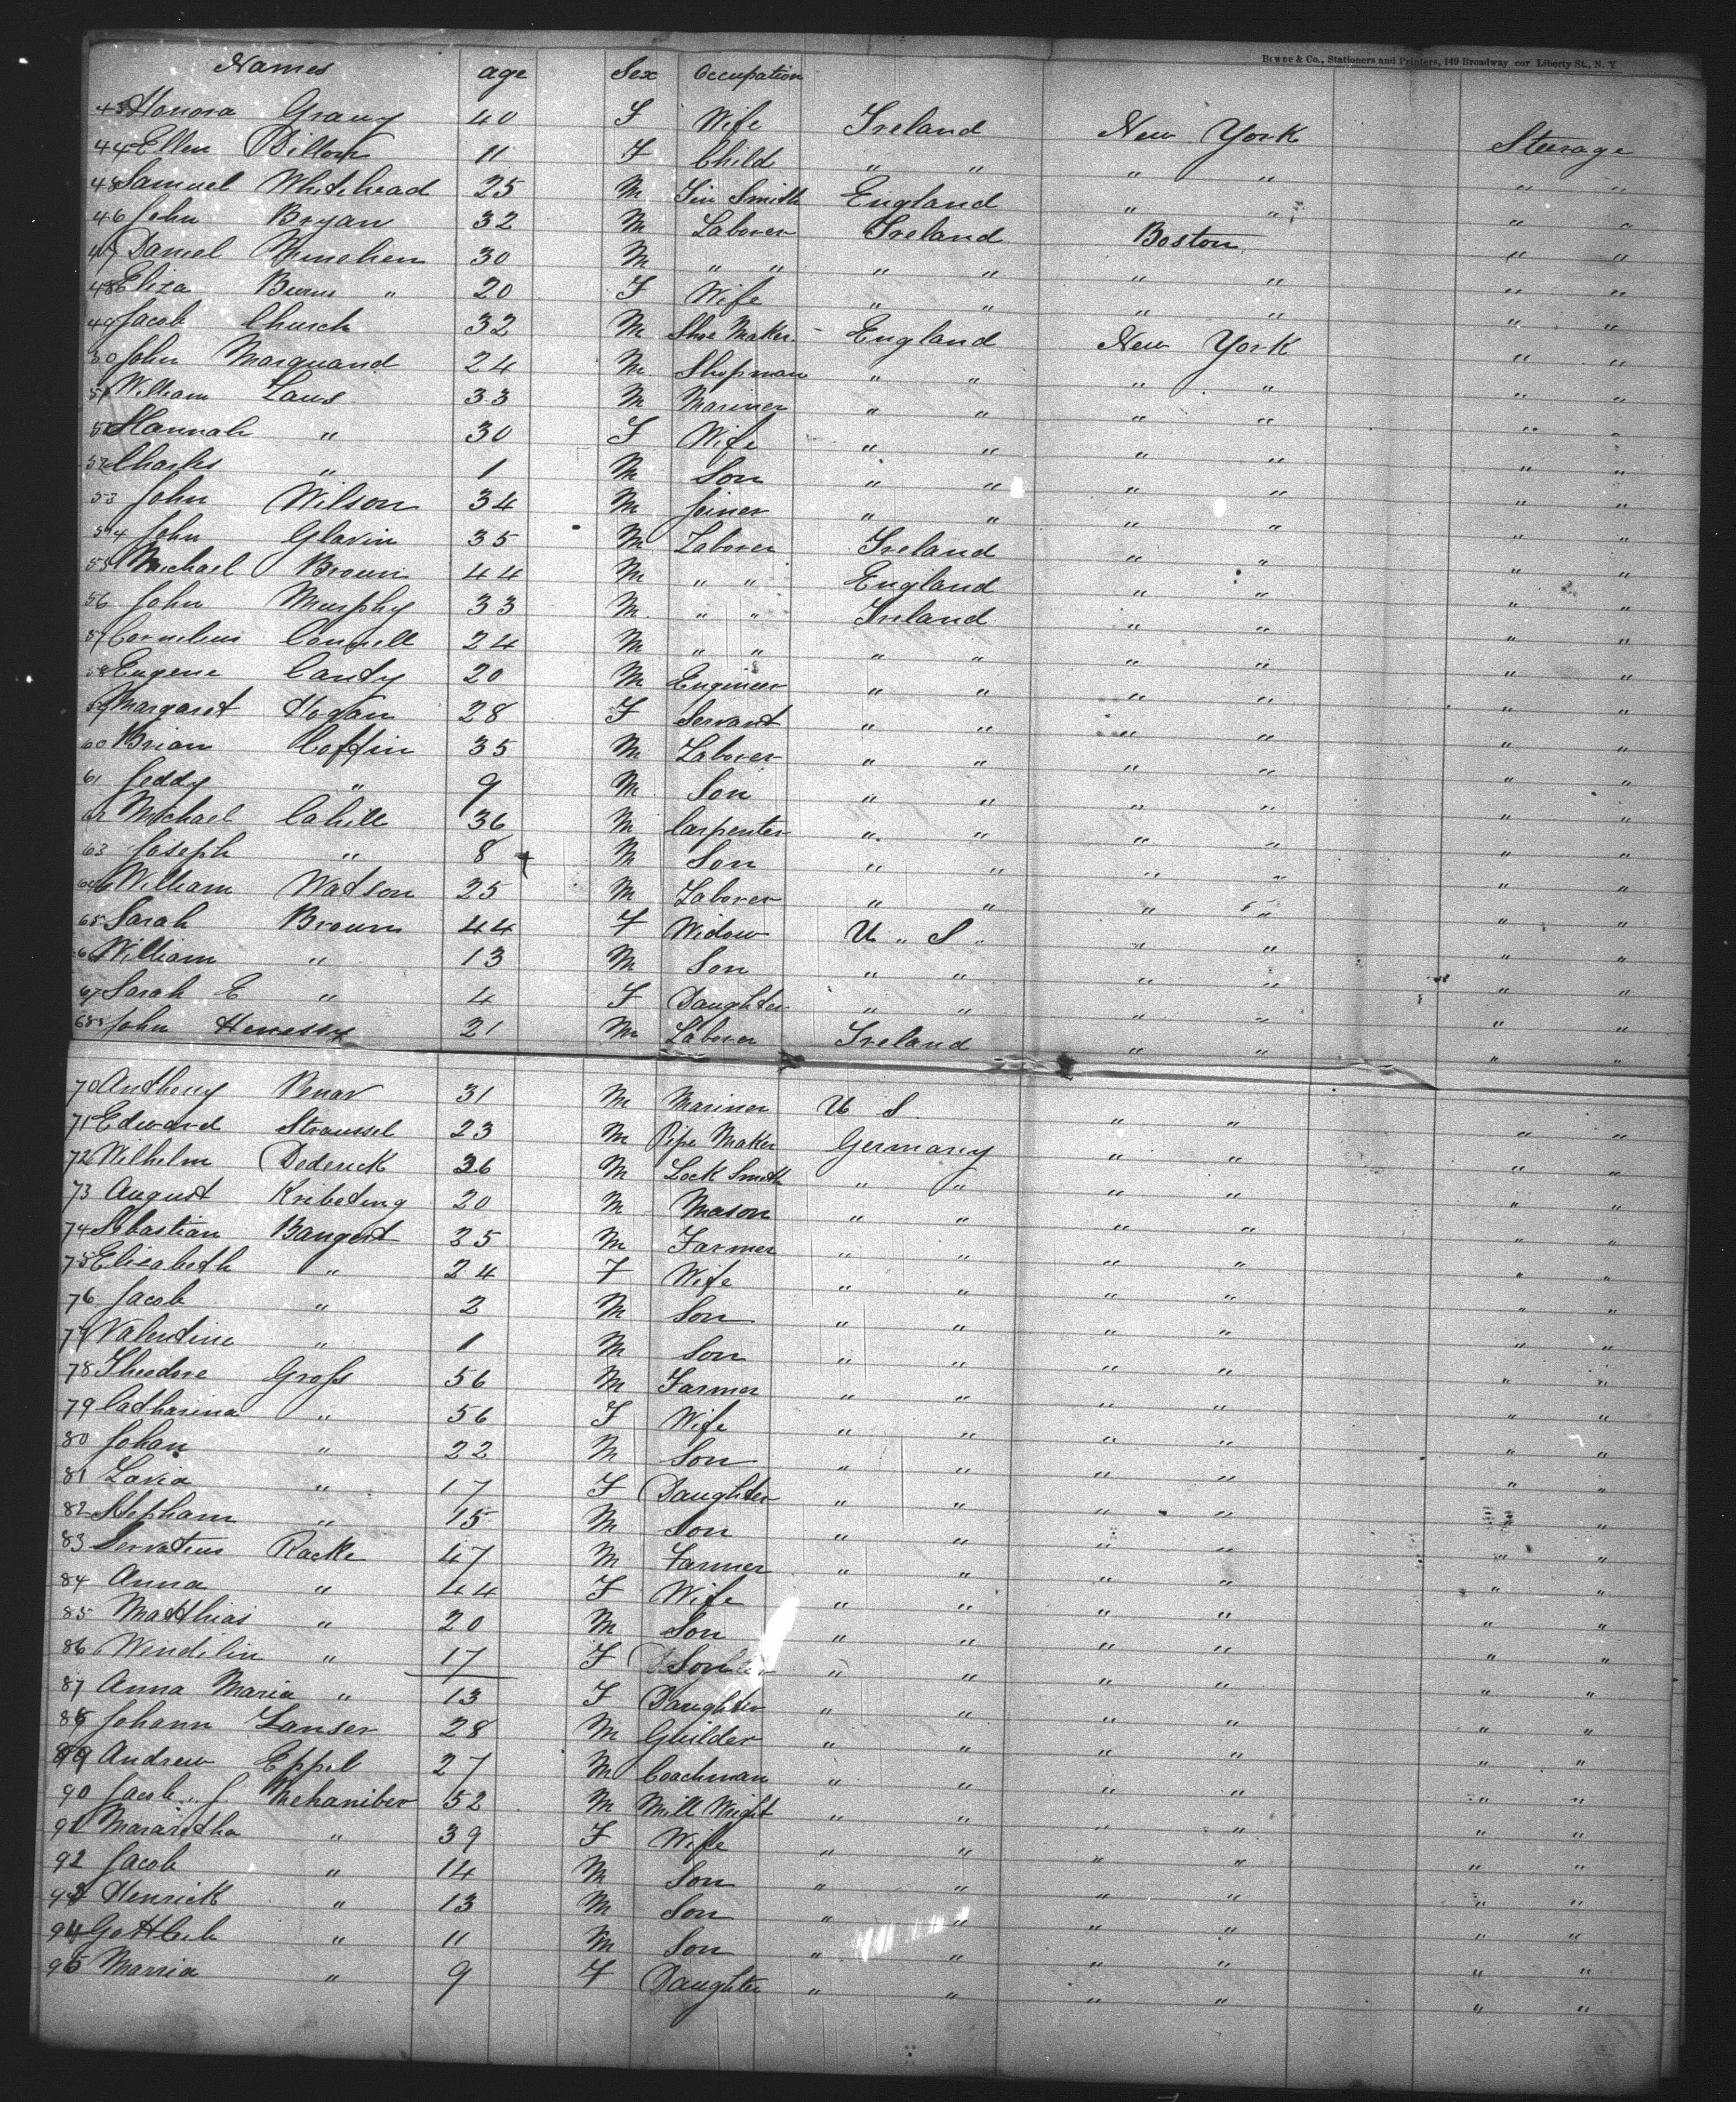 Bowne & Co., Stationers and Printers, 149 Broadway cor Liberty St., N. Y
Names age Sex Occupation
43 Honora Grany 40 F Wife Ireland New York Steerage
44 Ellen Dillon 11 F Child " " " " " "
45 Samuel Whitehead 25 M Tin Smith England " " " "
46 John Bryan 32 M Laborer Ireland Boston " "
47 Daniel 30 M " " " " " " " "
48 Eliza Burns " 20 F Wife " " " " " "
49 Jacob Church 32 M Shoe Maker England New York " "
50 John Marquand 24 M Shopman " " " " " "
51 William Laws 33 M Mariner " " " " " "
Hannah " 30 F Wife " " " " " "
52 Charles " 1 M Son " " " " " "
53 John Wilson 34 M Joiner " " " " " "
54 John Glavin 35 M Laborer Ireland " " " "
55 Michael Brown 44 M " " England " " " "
56 John Murphy 33 M " " Ireland " " " "
57 Cornelius Connell 24 M " " " " " " " "
58 Eugene Canty 20 M Engineer " " " " " "
59 Margaret Hogan 28 F Servant " " " " " "
60 Brian Coffin 35 M Laborer " " " " " "
61 Jeddy " 9 M Son " " " " " "
62 Michael Cahill 36 M Carpenter " " " " " "
63 Joseph " 8 M Son " " " " " "
64 William Watson 25 M Laborer " " " " " "
65 Sarah Brown 44 F Widow U " S " " " " "
66 William " 13 M Son " " " " " "
67 Sarah E " 4 F Daughter " " " " " "
68 John Henessy 21 M Laborer Ireland " " " "
70 Anthony Penar 31 M Mariner U S " " " "
71 Edward Straussel 23 M Pipe Maker Germany " " " "
72 Wilhelm Dederick 26 M Lock Smith " " " " " "
73 August Kribeting 20 M Mason " " " " " "
74 Sebastian Bangert 25 M Farmer " " " " " "
75 Elizabeth " 24 F Wife " " " " " "
76 Jacob " 2 M Son " " " " " "
77 Valentine " 1 M Son " " " " " "
78 Theodore Groſs 56 M Farmer " " " " " "
79 Catharina " 56 F Wife " " " " " "
80 Johan " 22 M Son " " " " " "
81 Lavia " 17 F Daughter " " " " " "
82 Stephann " 15 M Son " " " " " "
83 Servatius Racke 47 M Farmer " " " " " "
84 Anna " 44 F Wife " " " " " "
85 Matthias " 20 M Son " " " " " "
86 Wendilin " 17 F Son " " " " " "
87 Anna Maria " 13 F Daughter " " " " " "
88 Johann Lanser 28 M Guilder " " " " " "
89 Andrew Eppel 27 M Coachman " " " " " "
90 Jacob J Mehaniber 52 M Mill Wright " " " " " "
91 Marantha " 39 F Wife " " " " " "
92 Jacob " 14 M Son " " " " " "
93 Henrick " 13 M Son " " " " " "
94 Gottlieb " 11 M Son " " " " " "
95 Marria " 9 F Daughter " " " " " "